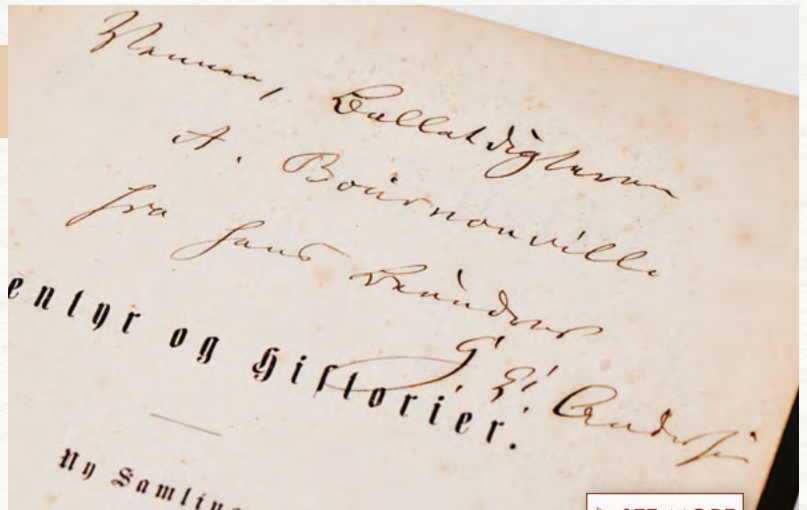 Vennen, Balletdigteren
A. Bournonville
fra hans Beundrer
H. C. Andersen
entyr og Historier.
Ny Samling
SEE MORE